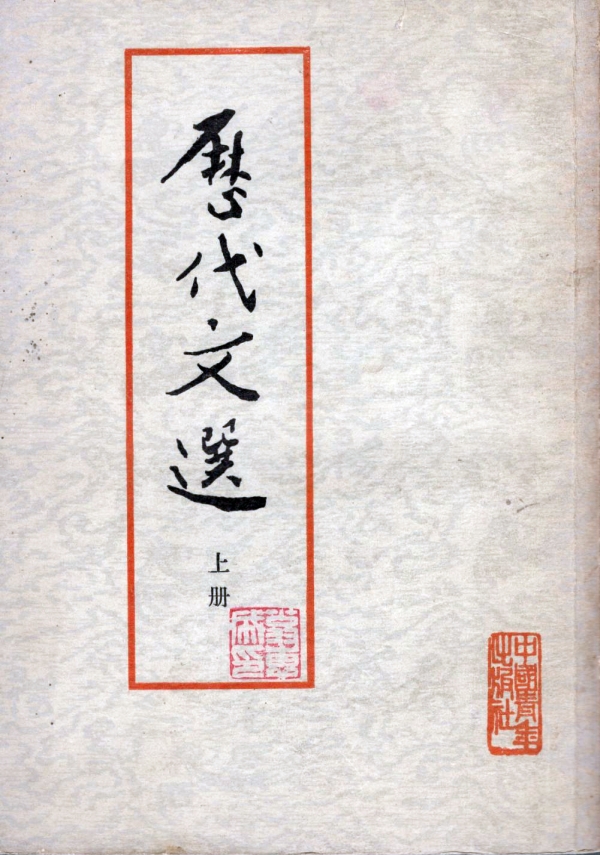 歷代文選
上册
中國青年
出版社